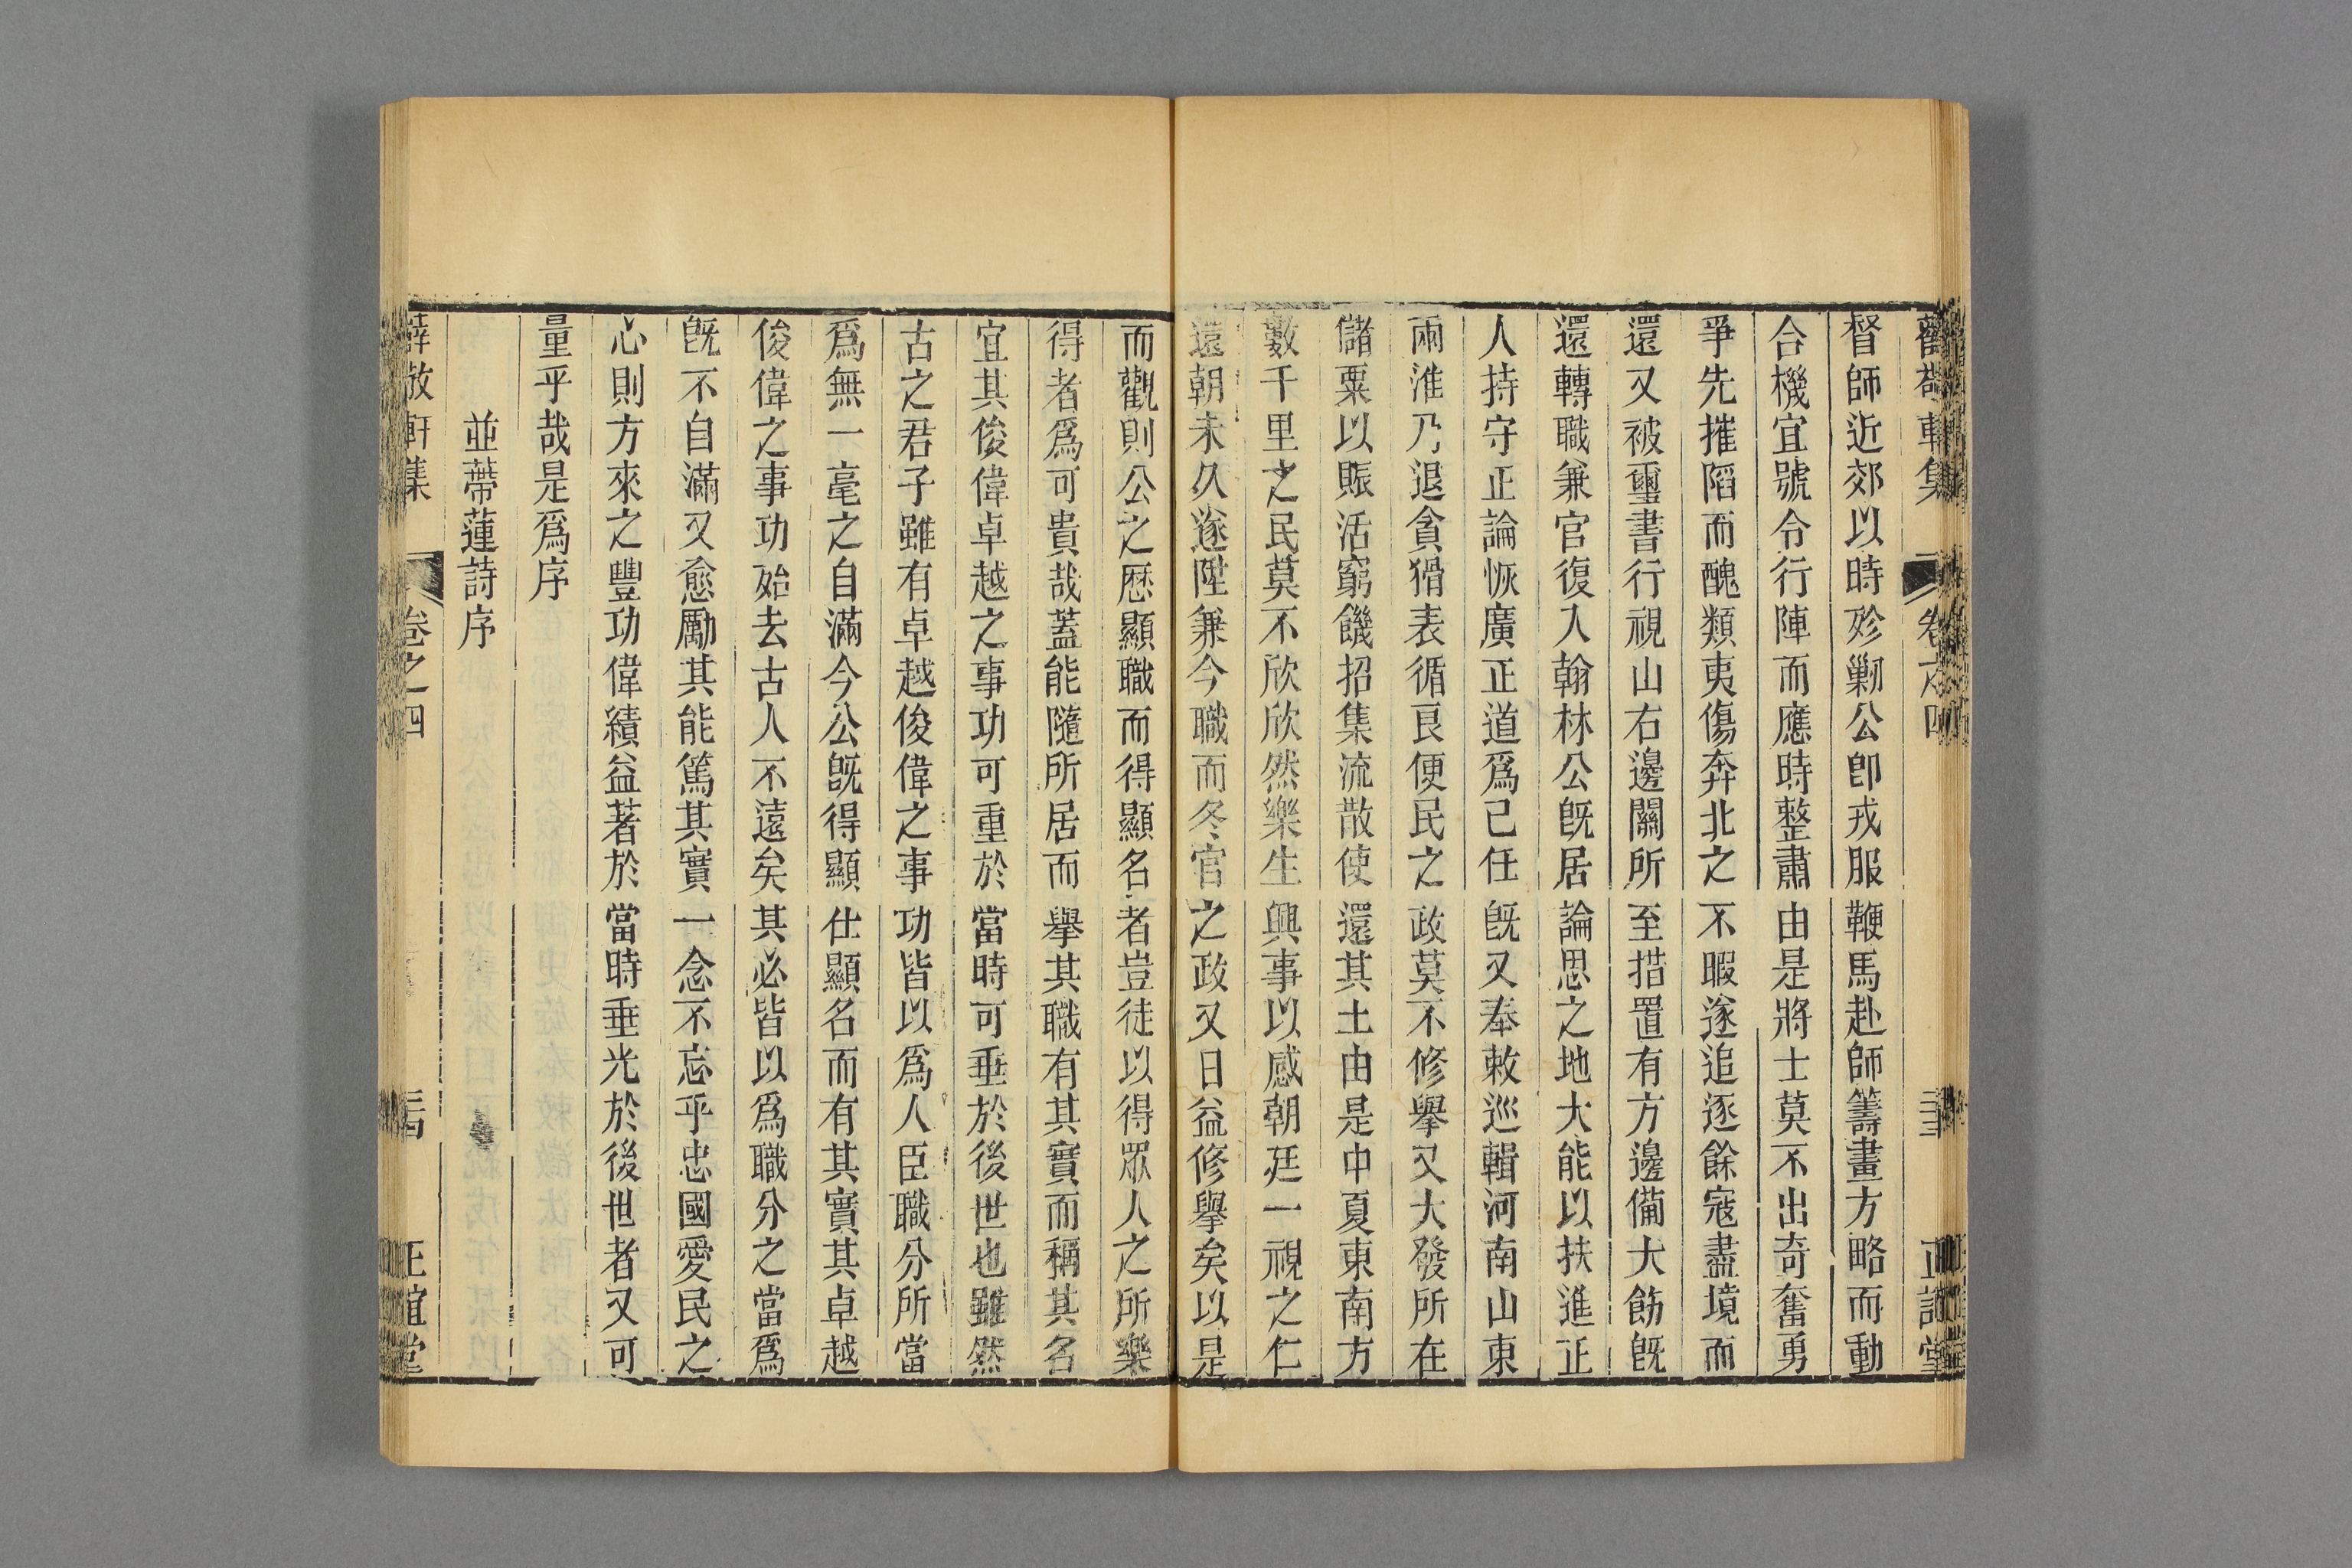 薛敬軒集 卷之四 三十三 正誼堂
督師近郊以時殄剿公卽戎服鞭馬赴師籌畫方略而動
合機宜號令行陣而應時整肅由是將士莫不出奇奮勇
爭先摧陷而醜類夷傷奔北之不暇遂追逐餘寇盡境而
還又被璽書行視山右邊關所至措置有方邊備大飭旣
還轉職兼官復入翰林公旣居論思之地大能以扶進正
人持守正論恢廣正道爲己任旣又奉敕巡輯河南山東
兩淮乃退貪猾表循良便民之政莫不修舉又大發所在
儲粟以賑活窮饑招集流散使還其土由是中夏東南方
數千里之民莫不欣欣然樂生興事以感朝廷一視之仁
還朝未久遂陞兼今職而冬官之政又日益修舉矣以是
而觀則公之歷顯職而得顯名者豈徒以得眾人之所樂
得者爲可貴哉蓋能隨所居而舉其職有其實而稱其名
宜其俊偉卓越之事功可重於當時可垂於後世也雖然
古之君子雖有卓越俊偉之事功皆以爲人臣職分所當
爲無一毫之自滿今公旣得顯仕顯名而有其實其卓越
俊偉之事功始去古人不遠矣其必皆以爲職分之當爲
旣不自滿又愈勵其能篤其實一念不忘乎忠國愛民之
心則方來之豐功偉績益著於當時垂光於後世者又可
量乎哉是爲序
並蔕蓮詩序
薛敬軒集 卷之四 三十四 正誼堂